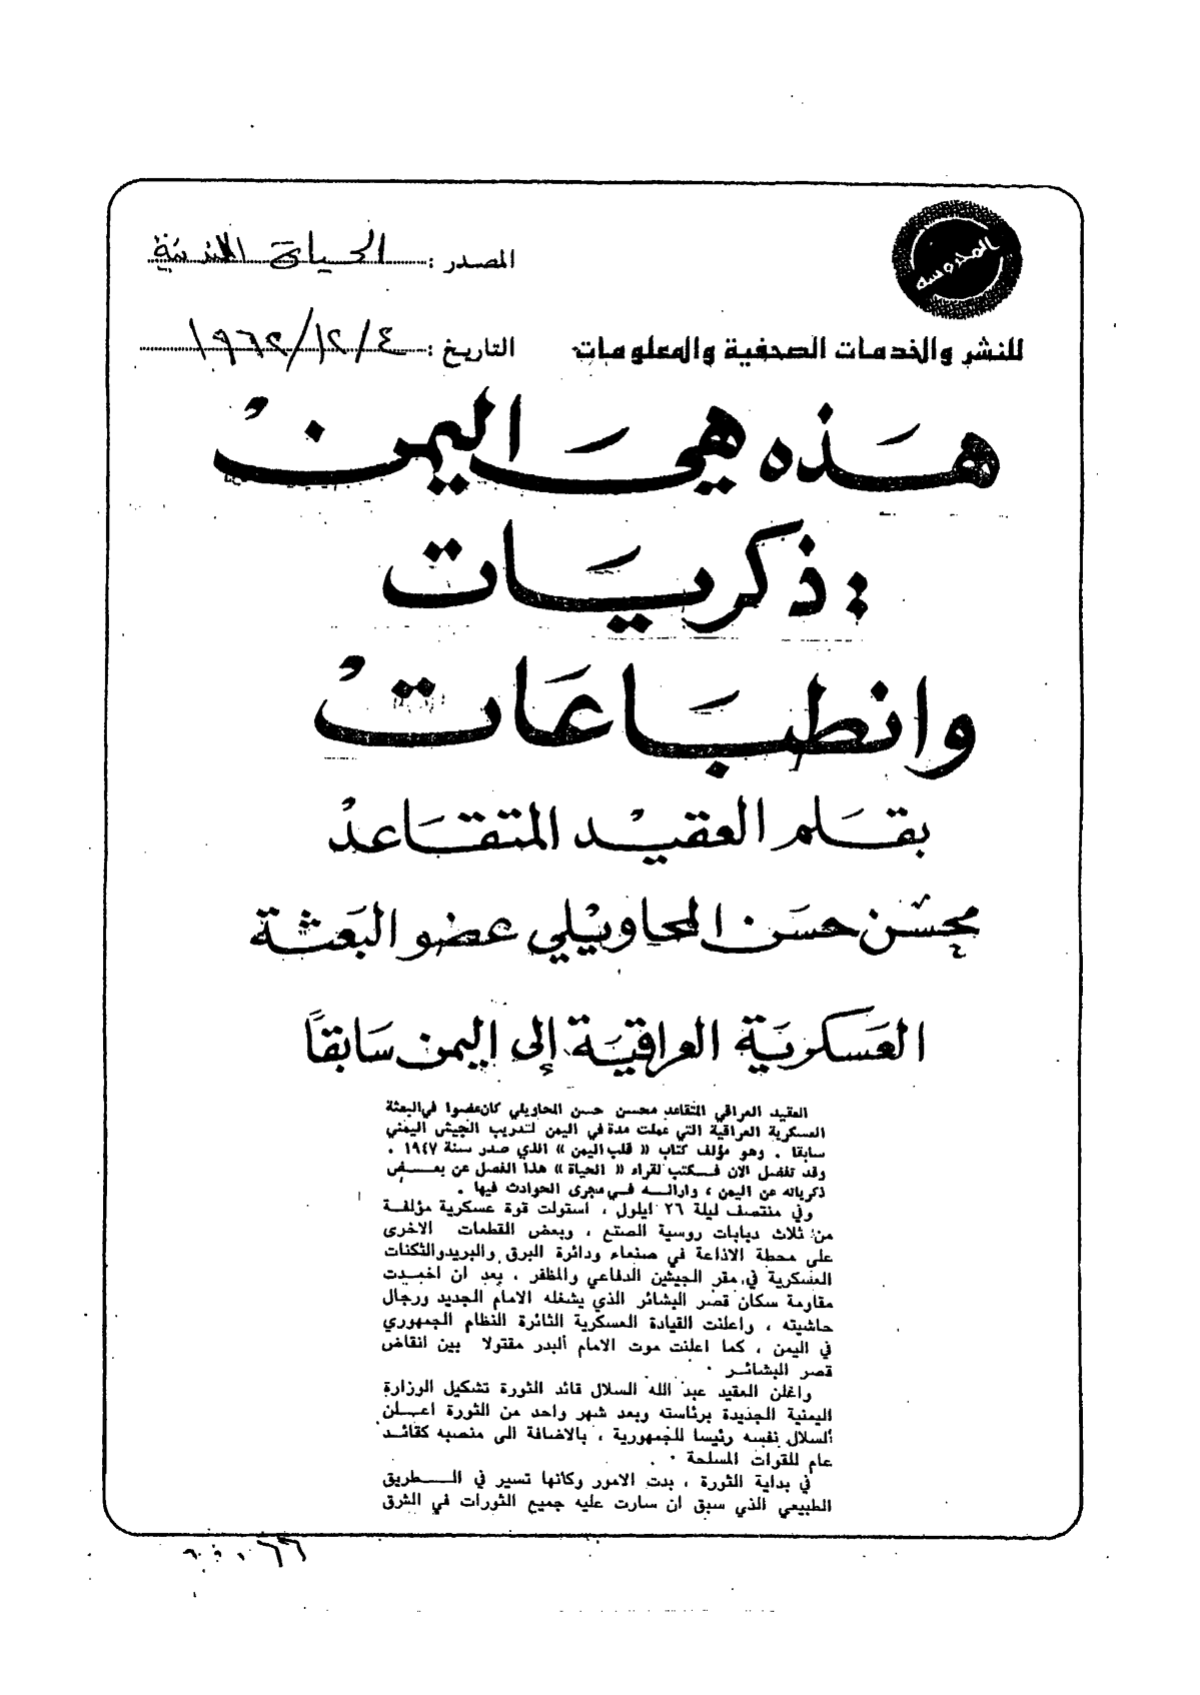 المحروسه
المصدر : الحياة اللندنية
للنشر والخدمات الصحفية والمعلومات
التاريخ : ٤/١٢/١٩٦٢
هذه هي اليمن
: ذكريات
وانطباعات
بقلم العقيد المتقاعد
محسن حسن المحاويلي عضو البعثة
العسكرية العراقية إلى اليمن سابقاً
العقيد العراقي المتقاعد محسن حسن المحاويلي كان عضوا في البعثة
العسكرية العراقية التي عملت مدة في اليمن لتدريب الجيش اليمني
سابقا . وهو مؤلف كتاب « قلب اليمن » الذي صدر سنة ١٩٤٧ .
وقد تفضل الان فكتب لقراء « الحياة » هذا الفصل عن بعض
ذكرياته عن اليمن ، وارائه في مجرى الحوادث فيها .
وفي منتصف ليلة ٢٦ ايلول ، استولت قوة عسكرية مؤلفة
من ثلاث دبابات روسية الصنع ، وبعض القطعات الاخرى
على محطة الاذاعة في صنعاء ودائرة البرق والبريد والثكنات
العسكرية في مقر الجيشين الدفاعي والمظفر ، بعد ان اخمدت
مقاومة سكان قصر البشائر الذي يشغله الامام الجديد ورجال
حاشيته ، واعلنت القيادة العسكرية الثائرة النظام الجمهوري
في اليمن ، كما اعلنت موت الامام البدر مقتولا بين انقاض
قصر البشائر .
واعلن العقيد عبد الله السلال قائد الثورة تشكيل الوزارة
اليمنية الجديدة برئاسته وبعد شهر واحد من الثورة اعلن
السلال نفسه رئيسا للجمهورية ، بالاضافة الى منصبه كقائد
عام للقوات المسلحة .
في بداية الثورة ، بدت الامور وكانها تسير في الطريق
الطبيعي الذي سبق ان سارت عليه جميع الثورات في الشرق